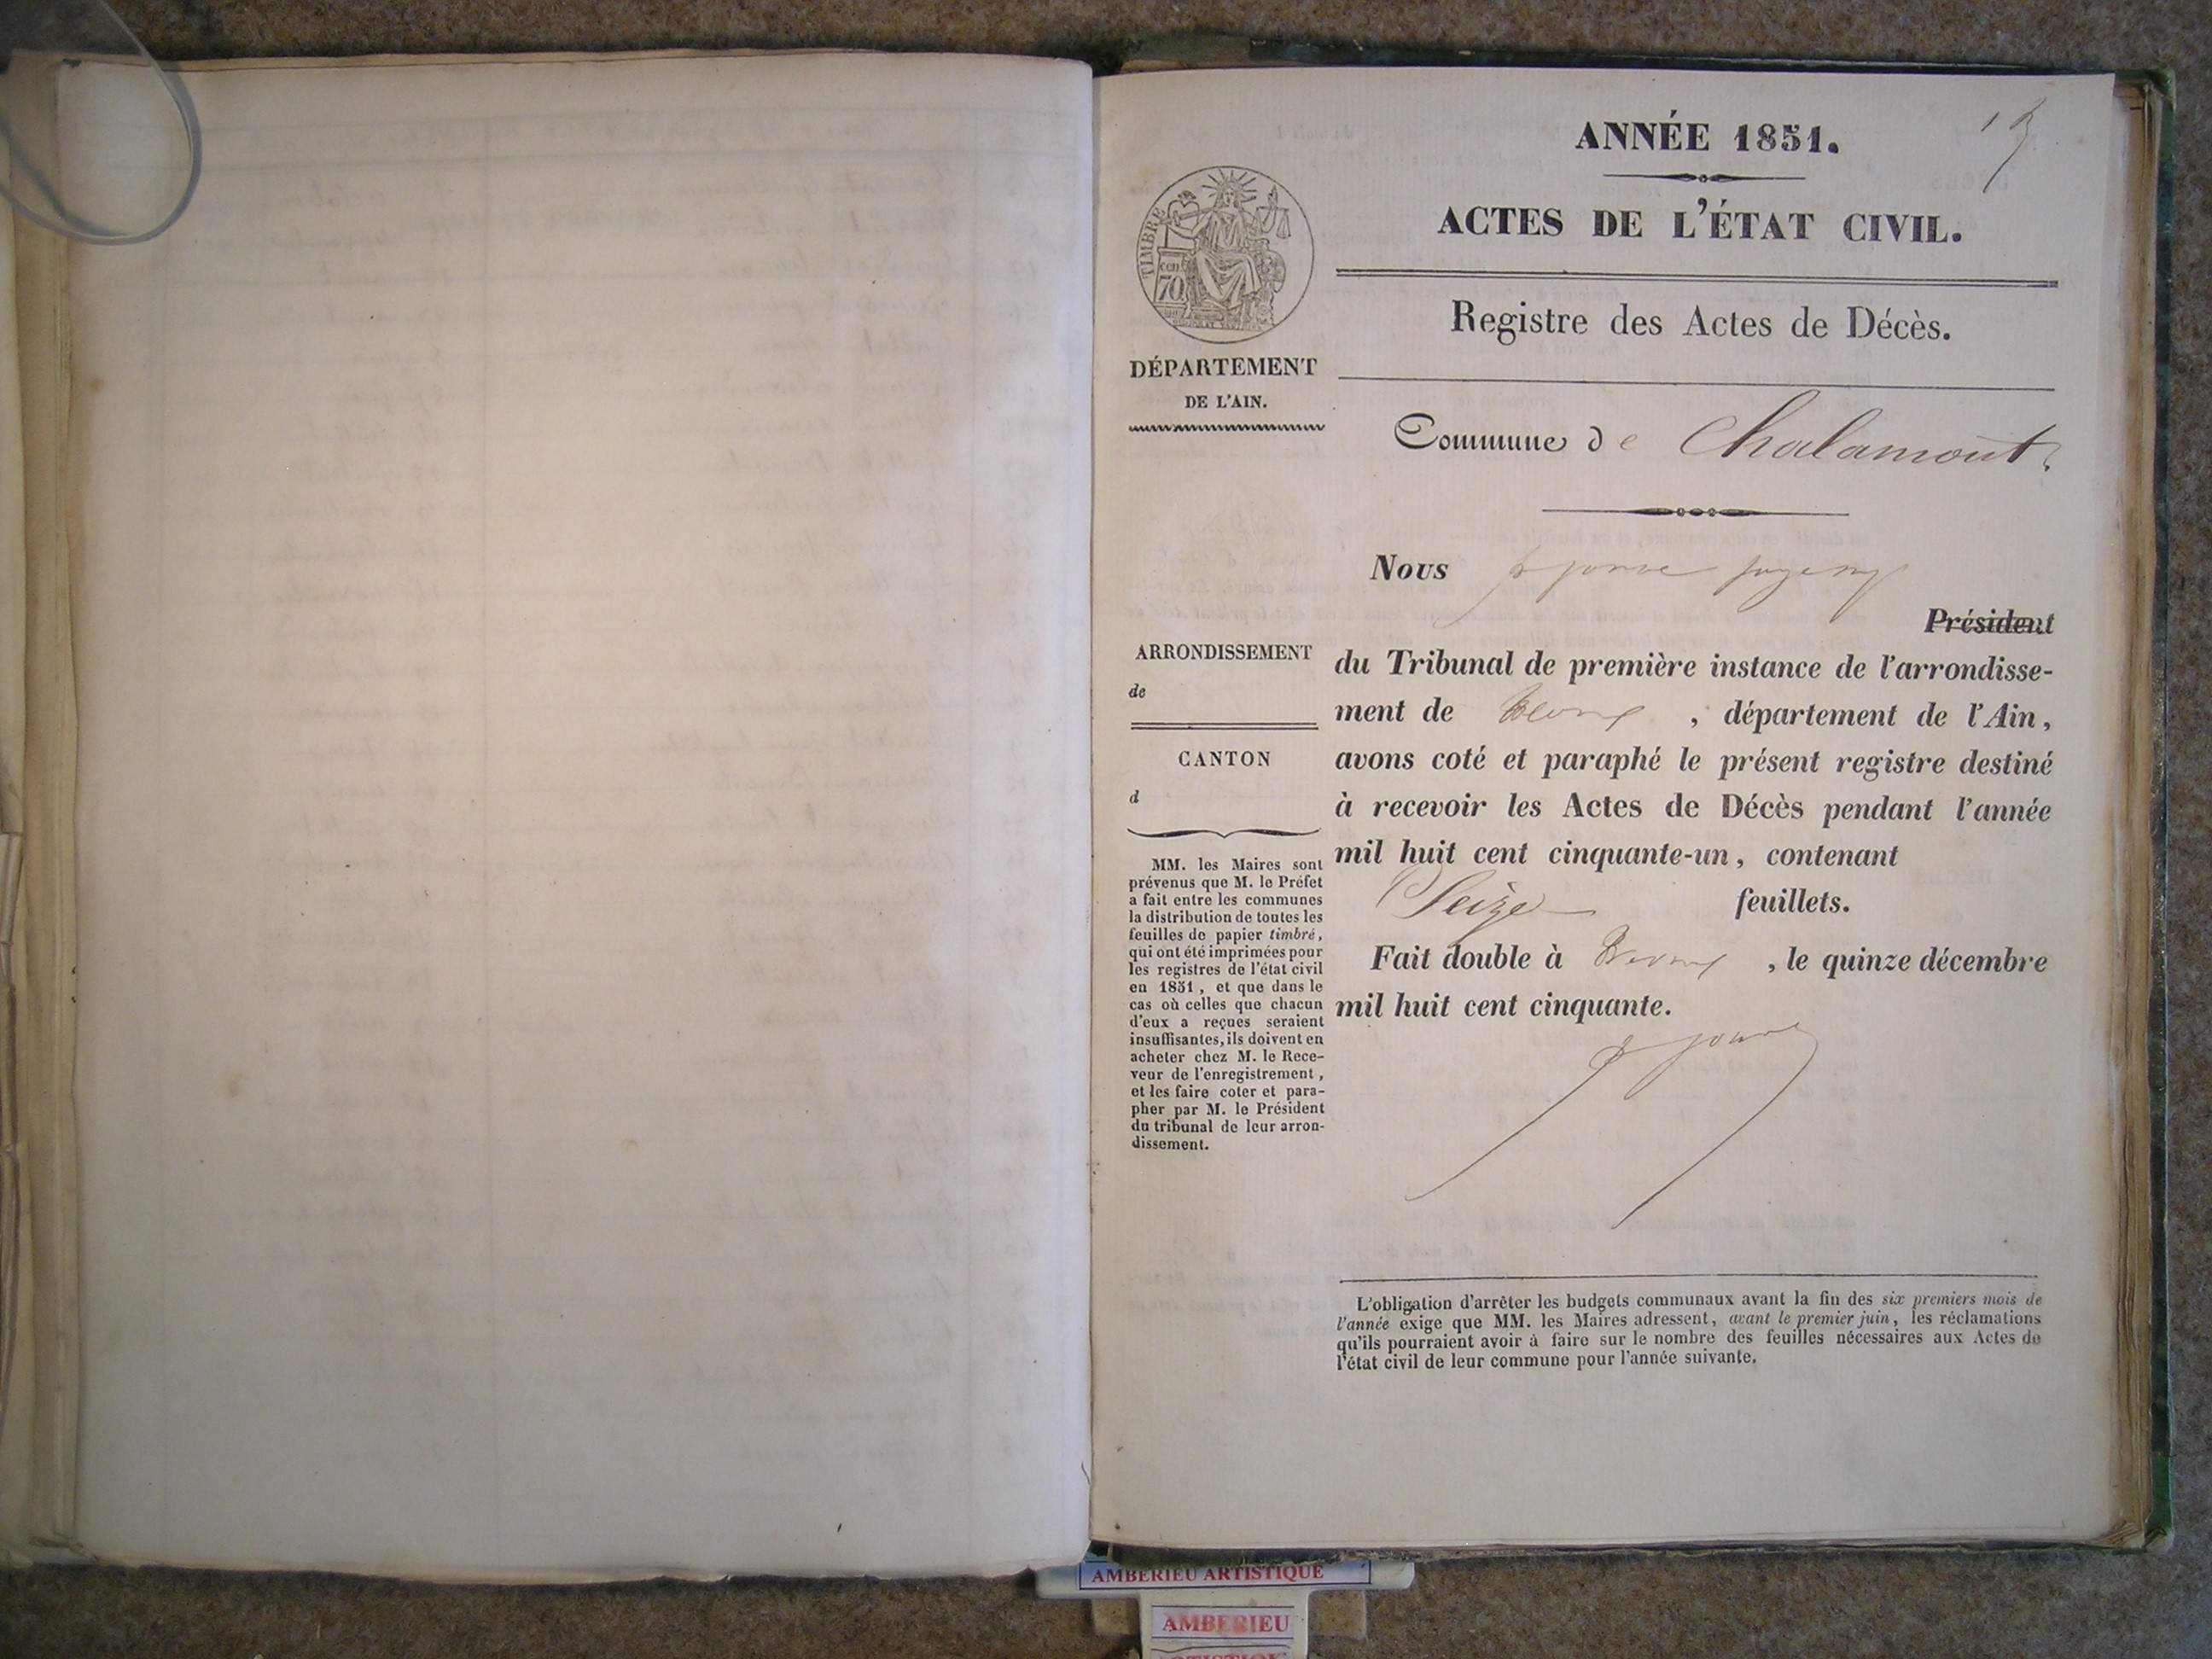 ANNÉE 1851.
ACTES DE L'ÉTAT CIVIL.
Registre des Actes de Décès.
TIMBRE
cen
70
DÉPARTEMENT
DE L'AIN.
Commune de Chalamont.
Nous
Président
ARRONDISSEMENT
de
CANTON
d
du Tribunal de première instance de l'arrondisse-
ment de , département de l'Ain,
avons coté et paraphé le présent registre destiné
à recevoir les Actes de Décès pendant l'année
mil huit cent cinquante-un, contenant
Seize feuillets.
Fait double à , le quinze décembre
mil huit cent cinquante.
MM. les Maires sont
prévenus que M. le Préfet
a fait entre les communes
la distribution de toutes les
feuilles de papier timbré,
qui ont été imprimées pour
les registres de l'état civil
en 1851, et que dans le
cas où celles que chacun
d'eux a reçues seraient
insuffisantes, ils doivent en
acheter chez M. le Rece-
veur de l'enregistrement,
et les faire coter et para-
pher par M. le Président
du tribunal de leur arron-
dissement.
L'obligation d'arrêter les budgets communaux avant la fin des six premiers mois de
l'année exige que MM. les Maires adressent, avant le premier juin, les réclamations
qu'ils pourraient avoir à faire sur le nombre des feuilles nécessaires aux Actes de
l'état civil de leur commune pour l'année suivante.
AMBERIEU ARTISTIQUE
AMBERIEU